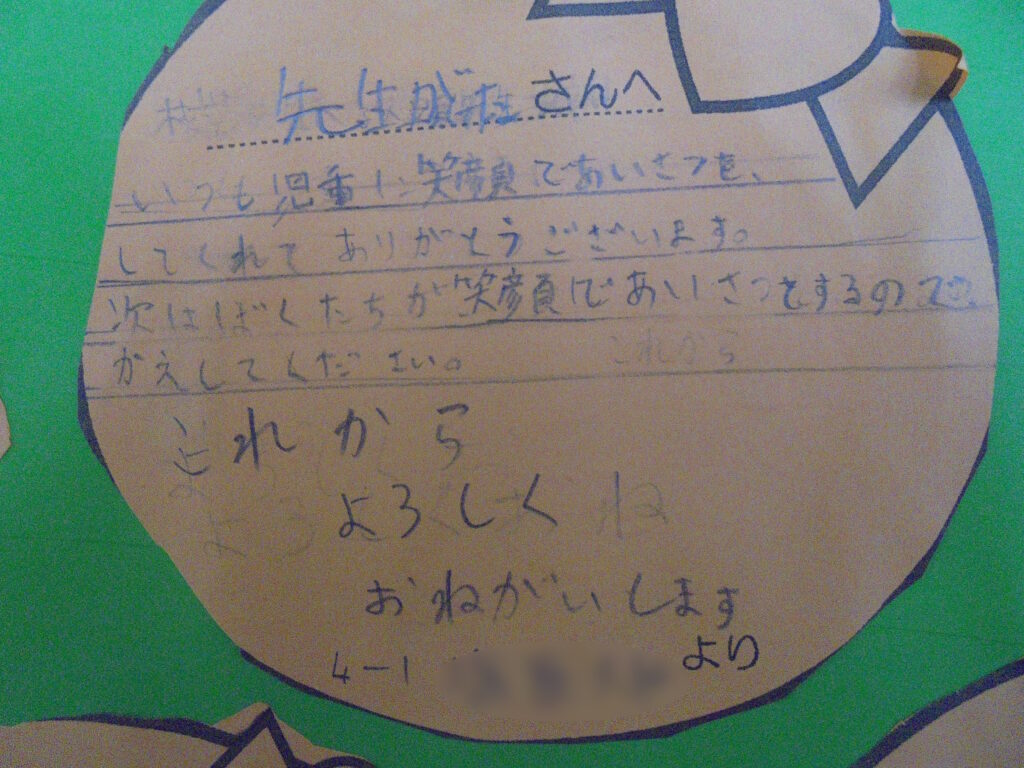 さんへ
いつも児童に笑顔であいさつを、
してくれてありがとうございます。
次はぼくたちが笑顔であいさつをするので
かえしてください。
これから
よろしく
おねがいします
4-1 より